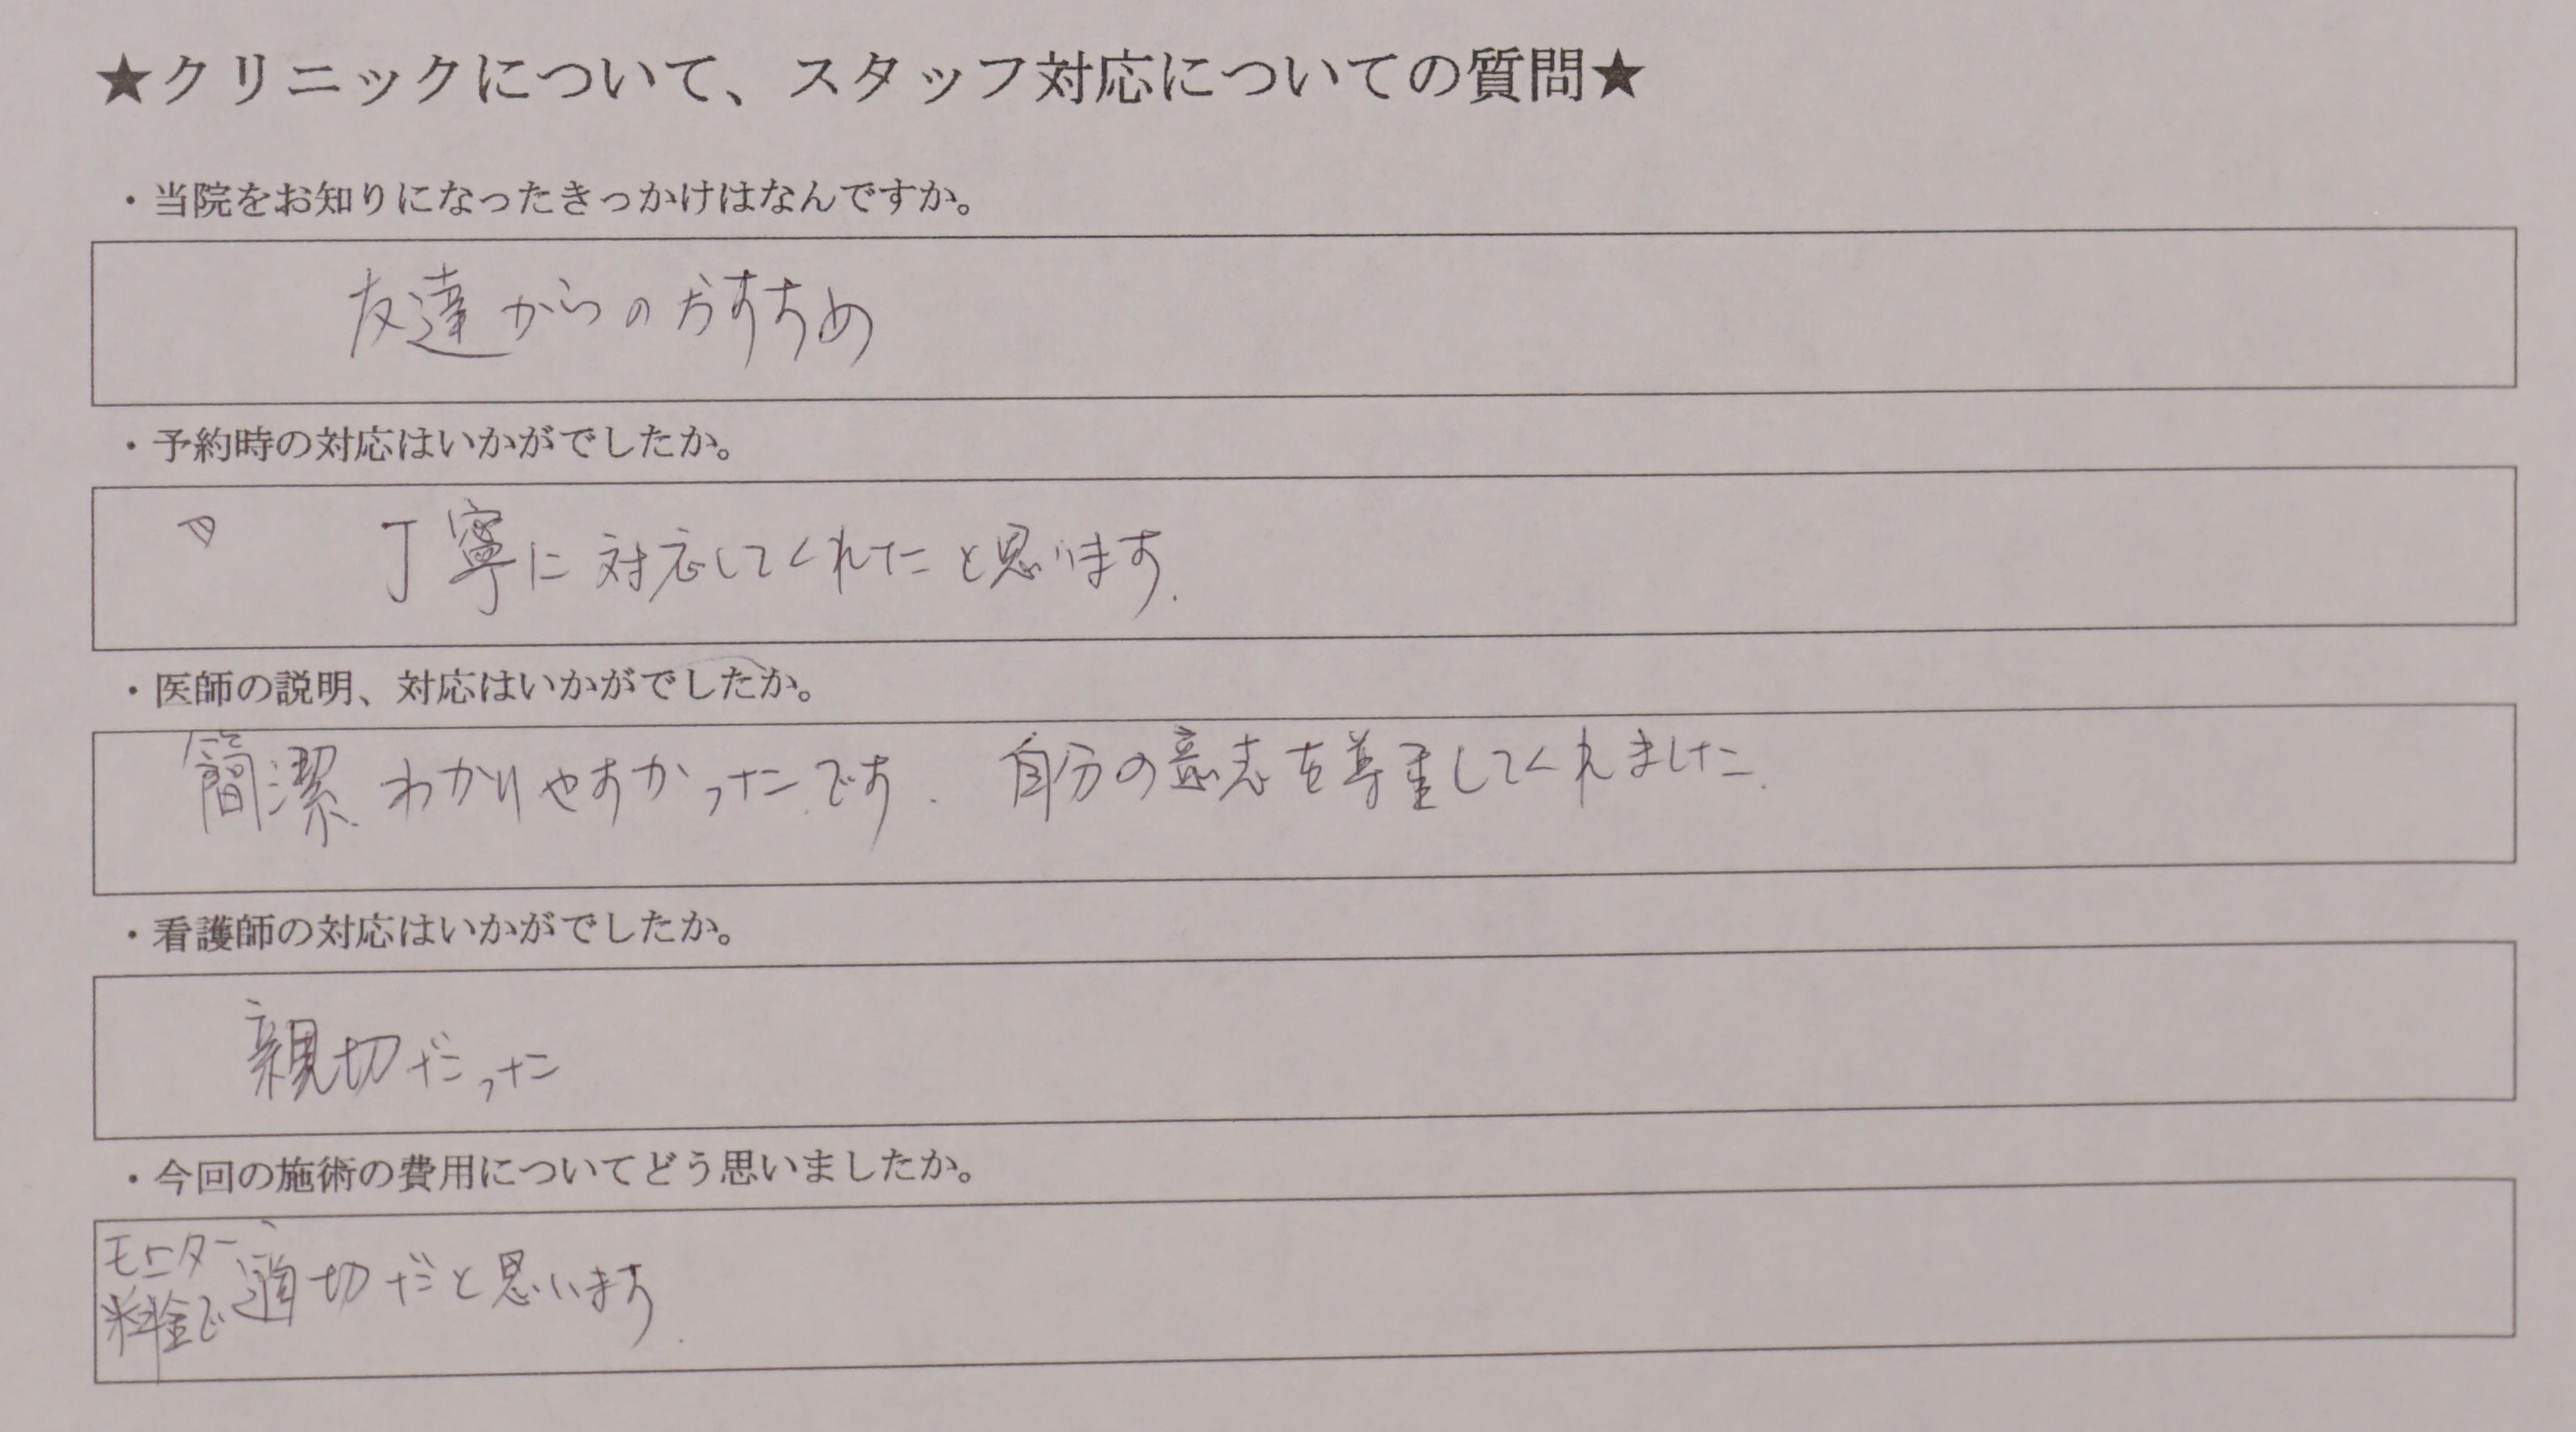 ★クリニックについて、スタッフ対応についての質問★
・当院をお知りになったきっかけはなんですか。
友達からのおすすめ
・予約時の対応はいかがでしたか。
丁寧に対応してくれたと思います.
・医師の説明、対応はいかがでしたか。
簡潔 わかりやすかったです. 自分の意志を尊重してくれました.
・看護師の対応はいかがでしたか。
親切だった
・今回の施術の費用についてどう思いましたか。
モニター
料金で 適切だと思います.